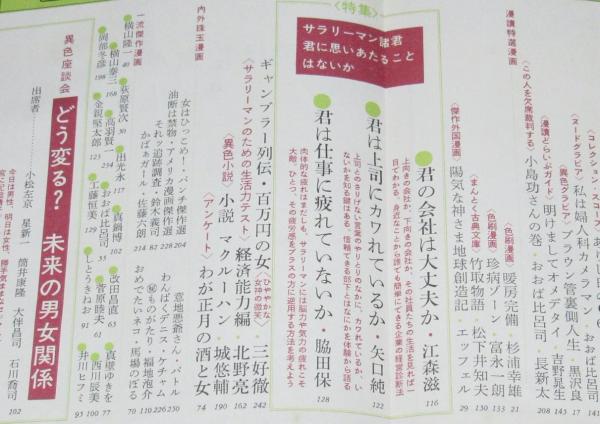 漫讀特選漫画
〈コレクション・スコープ〉
〈この人を欠席裁判する〉
〈ヌードグラビア〉私は婦人科カメラマン・おおば比呂司 141
〈異色グラビア〉ブラウン管裏側人生・黒沢良 17
漫讀どらいぶガイド 明けましてオメデタイ・吉野晃生 145
小島功さんの巻・おおば比呂司・長新太 208
〈色刷漫画〉暖房完備・杉浦幸雄 21
〈色刷漫画〉珍病クリーン・富永一朗 133
〈まんとく古典文庫〉竹取物語・松下井知夫 150
〈傑作外国漫画〉陽気な神さま地球創造記・エッフェル 29
〈特集〉
サラリーマン諸君
君に思いあたること
はないか
君の会社は大丈夫か・江森滋 116
上向きの会社か、下向きの会社か、その社員たちの生活を見れば一目でわかる。身近なことから誰でも簡単にできる企業の経営診断法
君は上司にカワれているか・矢口純 122
上司とのさりげない言葉のやりとりのなかに、カワれているか、いないかを知る鍵はある。信頼できる部下とはなにかを体験から語る
君は仕事に疲れていないか・脇田保 128
肉体的な疲れはまだしも、サラリーマンには脳力や気力の疲れこそ大敵。ひとつ、その疲労感をプラスの方に逆用する方法を考えよう
ギャンブラー列伝・百万円の女〈ひややかな女神の微笑〉・三好徹 242
〈サラリーマンのための生活力テスト〉経済能力編・北野亮 162
〈異色小説〉小説 マクルーハン・城悠輔 190
〈アンケート〉わが正月の酒と女 74
内外珠玉漫画
女はひっこめ!・パンチ傑作選 204
油断は禁物・アメリカ漫画傑作選 228
それッ追跡調査・鈴木義司 87
かばぁガール・佐藤六朗 82
214
意地悪爺さん・バトル 250
わんぱくデニス・ケチャム 226
㊙ものがたり・福地泡介 150
おめでたいネコ・馬場のぼる 110
70
一流傑作漫画
横山隆一 49
横山泰三 168
岡部冬彦 198
荻原賢次 30
高羽賢一 234
金親堅太郎 123
出光永 117
おおば比呂司 55
工藤恒美 129
真鍋博 102
改田昌直 63
菅原睦夫 61
しとうきねお 91
真壁ゆきを 77
西川辰美 100
井川ヒフミ 95
異色座談会
どう変る? 未来の男女関係
出席者
小松左京 星新一 筒井康隆 大伴昌司 石川喬司 102
今日は男性、明日は女性、